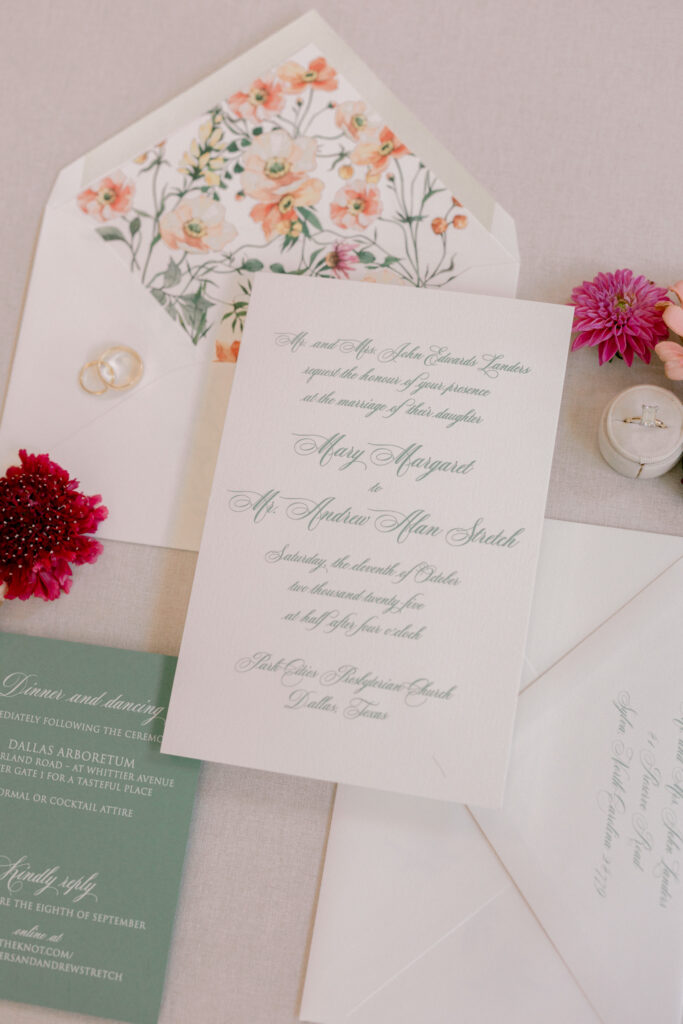 Mr. and Mrs. John Edwards Landers
request the honour of your presence
at the marriage of their daughter
Mary Margaret
to
Mr. Andrew Alan Stretch
Saturday, the eleventh of October
two thousand twenty five
at half after four o'clock
Park Cities Presbyterian Church
Dallas, Texas
Dinner and dancing
EDIATELY FOLLOWING THE CEREMO
DALLAS ARBORETUM
RLAND ROAD - AT WHITTIER AVENUE
ER GATE 1 FOR A TASTEFUL PLACE
ORMAL OR COCKTAIL ATTIRE
Kindly reply
RE THE EIGHTH OF SEPTEMBER
online at
THEKNOT.COM/
ERSANDANDREWSTRETCH
and Mrs. John Landers
Road
Sylva, North Carolina